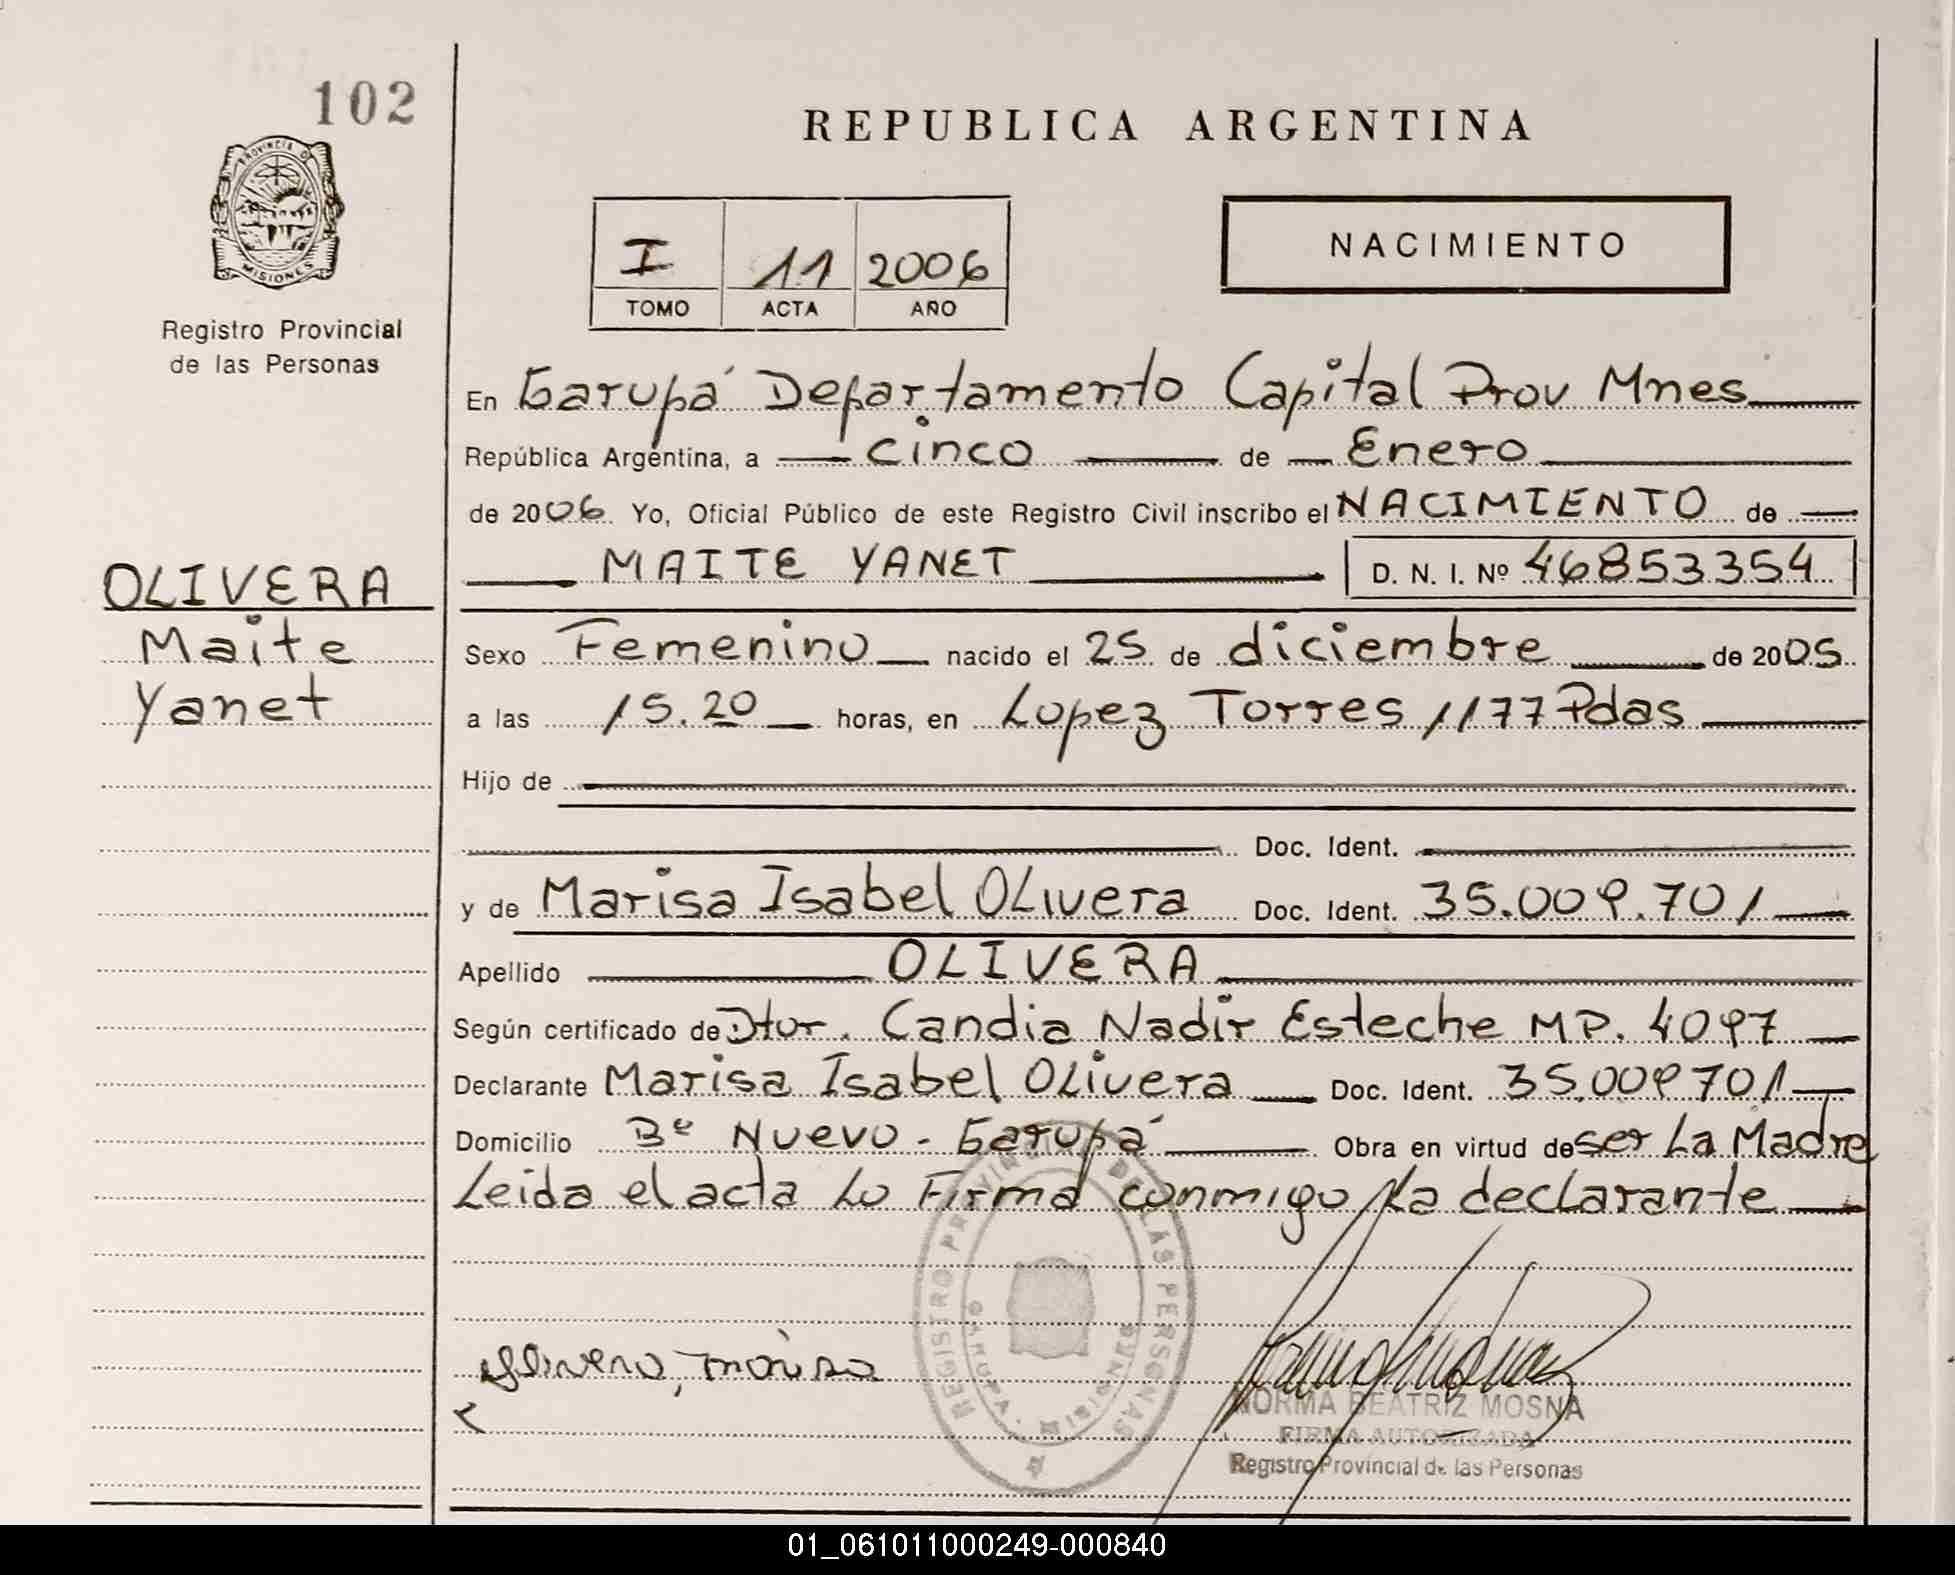 102
REPUBLICA ARGENTINA
PROVINCIA D
MISIONES
Registro Provincial
de las Personas
I 11 2006
TOMO ACTA AÑO
NACIMIENTO
En Garupá Departamento Capital Prov Mnes
República Argentina, a cinco de Enero
de 2006 Yo, Oficial Público de este Registro Civil inscribo el NACIMIENTO de
MAITE YANET D. N. I. Nº 46853354
OLIVERA
Maite
Yanet
Sexo Femenino nacido el 25 de diciembre de 2005
a las 15.20 horas, en Lopez Torres 1177 Pdas
Hijo de
Doc. Ident.
y de Marisa Isabel OLivera Doc. Ident. 35.009.701
Apellido OLIVERA
Según certificado de Dtor. Candia Nadir Esteche MP. 4097
Declarante Marisa Isabel OLivera Doc. Ident. 35.009701
Domicilio Bº Nuevo - Garupá Obra en virtud de ser La Madre
Leida el acta Lo Firma conmigo La declarante
REGISTRO PROVINCIAL DE LAS PERSONAS
GARUPA
Olivera, marisa
NORMA BEATRIZ MOSNA
FIRMA AUTORIZADA
Registro Provincial de las Personas
01_061011000249-000840